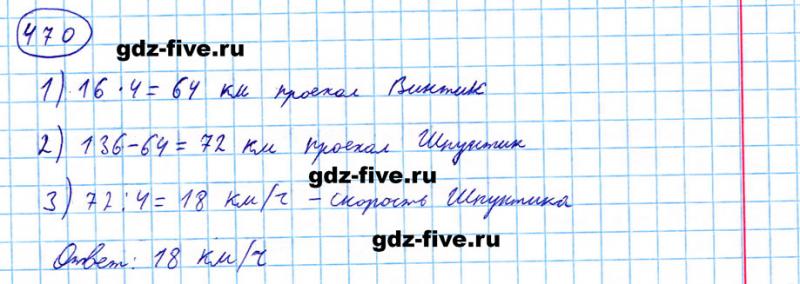 470
gdz-five.ru
1) 16 · 4 = 64 км проехал Винтик
2) 136 - 64 = 72 км проехал Шпунтик
gdz-five.ru
3) 72 : 4 = 18 км/ч - скорость Шпунтика
gdz-five.ru
Ответ: 18 км/ч